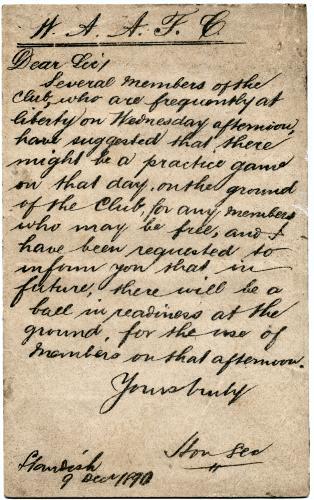 W. A. A. F. C.
Dear Sir,
Several members of the
Club, who are frequently at
liberty on Wednesday afternoon,
have suggested that there
might be a practice game
on that day, on the ground
of the Club, for any members
who may be free, and I
have been requested to
inform you that, in
future, there will be a
ball in readiness at the
ground, for the use of
Members on that afternoon.
Yours truly
Hon Sec
Standish
9 Dec 1890